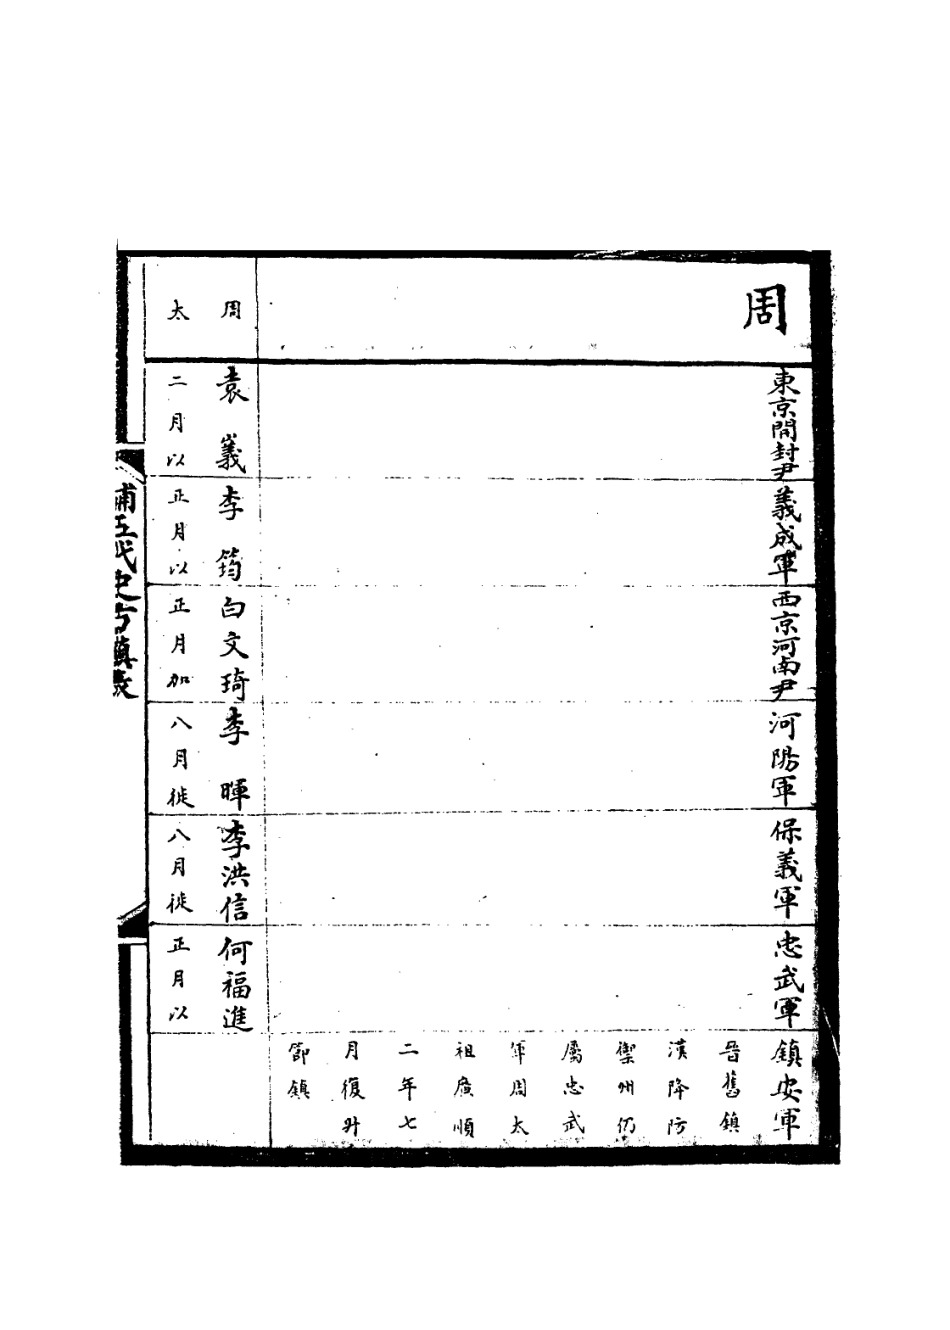 周
東京開封尹
義成軍
西京河南尹
河陽軍
保義軍
忠武軍
鎮安軍
晉舊鎮
漢降防
禦州仍
屬忠武
軍周太
祖廣順
二年七
月復升
節鎮
周
袁 羲
李 筠
白文琦
李 暉
李洪信
何福進
太
二月以
正月以
正月加
八月徙
八月徙
正月以
補五代史方鎮表